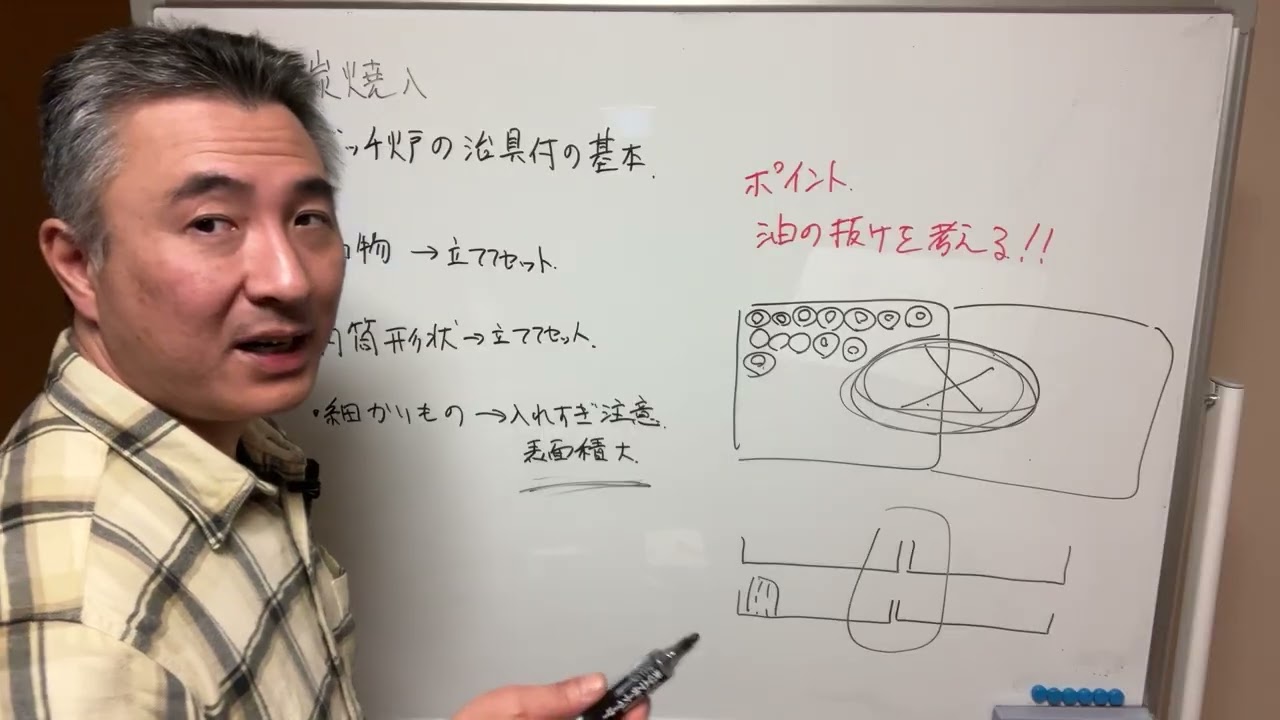 炭焼入
ッチ炉の治具付の基本.
物 →立ててセット.
筒形状→立ててセット.
・細かいもの →入れすぎ注意.
表面積大.
ポイント.
油の抜けを考える!!